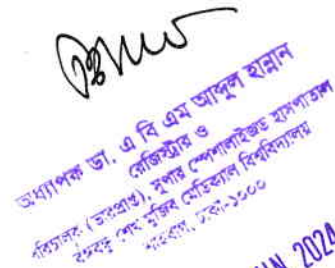 অধ্যাপক ডা. এ বি এম আব্দুল হান্নান
রেজিস্ট্রার ও
পরিচালক (ভারপ্রাপ্ত), সুপার স্পেশালাইজড হাসপাতাল
বঙ্গবন্ধু শেখ মুজিব মেডিক্যাল বিশ্ববিদ্যালয়
শাহবাগ, ঢাকা-১০০০
2024